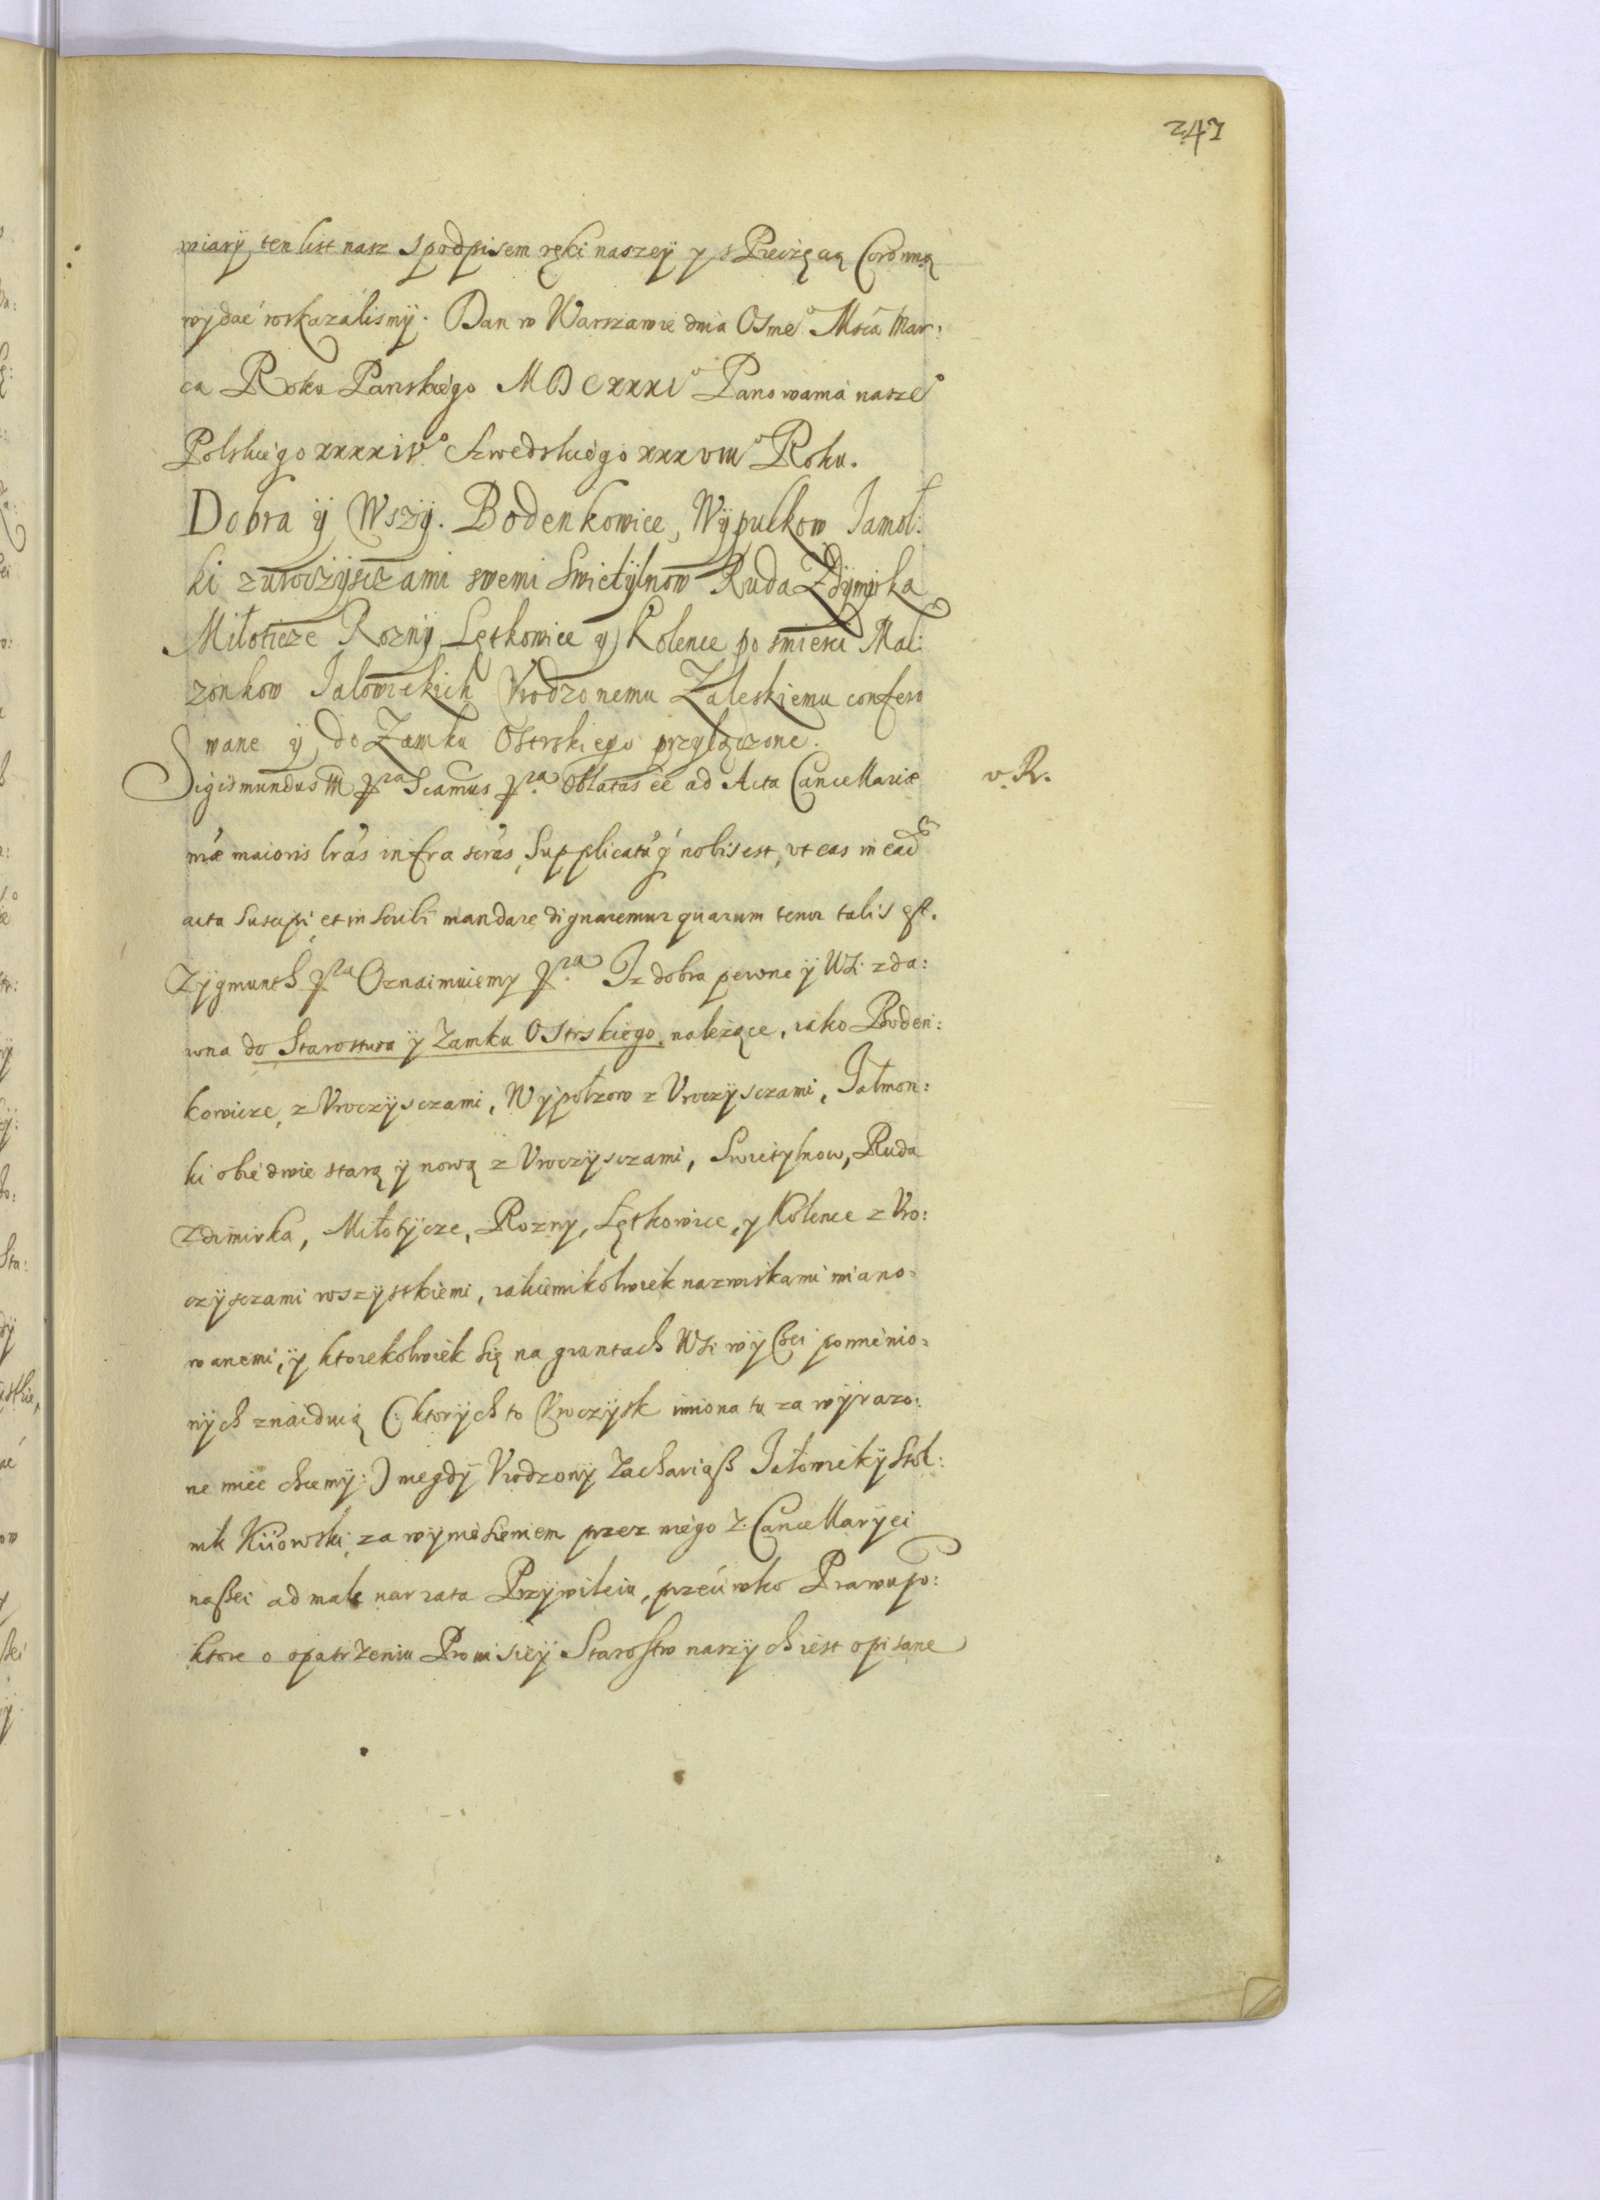 247
wiary ten list nasz s podpisem ręki naszey y s Pieczęcią Coronną
wydać roskazalismy. Dan w Warszawie dnia Osmeo Msca Mar:
ca Roku Panskiego MDCXXXIo Panowania naszeo
Polskiego XXXXIVo Szwedskiego XXXVIIIo Roku.
Dobra y Wszy. Bodenkowice, Wypulkow Jamol:
ki z uroczysczami swemi Swietylnow Ruda Zdymirka
Miloticze Rozny Lętkowice y Kolence po smierci Mał:
zonkow Jalowickich Urodzonemu Zaleskiemu confero
wane y do Zamku Ostrskiego przyłączone.
Sigismundus III pra Sciamus pra. Oblatas ee ad Acta Cancellariæ
v. R.
næ maioris lras infra scras, Supplicatu q nobis est, vt eas in ead
acta suscipi, et inscribi mandare dignaremur quarum tenor talis est.
Zygmunth pra Oznaimuiemy pra. Iz dobra pewne y WSi zda:
wna do Starostwa y Zamku Ostrskiego należące, iako Boden:
kowicze, z Vroczysczami, Wypołzow z Vroczysczami, Jałmon:
ki obiedwie starą y nową z Vroczysczami, Swietylnow, Ruda
Zdimirka, Miłotycze, Rozny, Lętkowice, y Kolence z Vro:
czysczami wszystkiemi, iakiemikolwiek nazwiskami miano:
wanemi, y ktorekolwiek się na gruntach WSi wyßei pomienio:
nych znaiduią (: ktorych to Vroczysk imiona tu za wyrazo:
ne miec chcemy :) niegdy Vrodzony Zachariaß Jałowicky Stol:
nik Kiiowski, za wyniesieniem przez niego z Cancellaryei
naßei ad male narrata Przywileiu, przeciwko Prawu po:
ktore o opatrzeniu Prowisiey Starostw naszych iest opisane